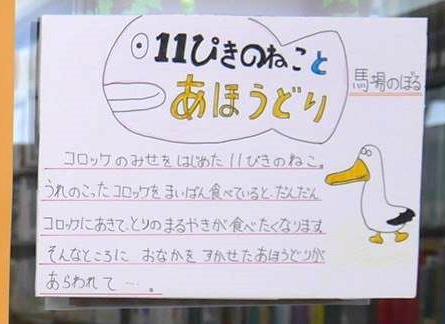 11ぴきのねこと
あほうどり
馬場のぼる
コロッケのみせをはじめた11ぴきのねこ。
うれのこったコロッケをまいばん食べていると、だんだん
コロッケにあきて、とりのまるやきが食べたくなります。
そんなところに おなかをすかせたあほうどりが
あらわれて…。